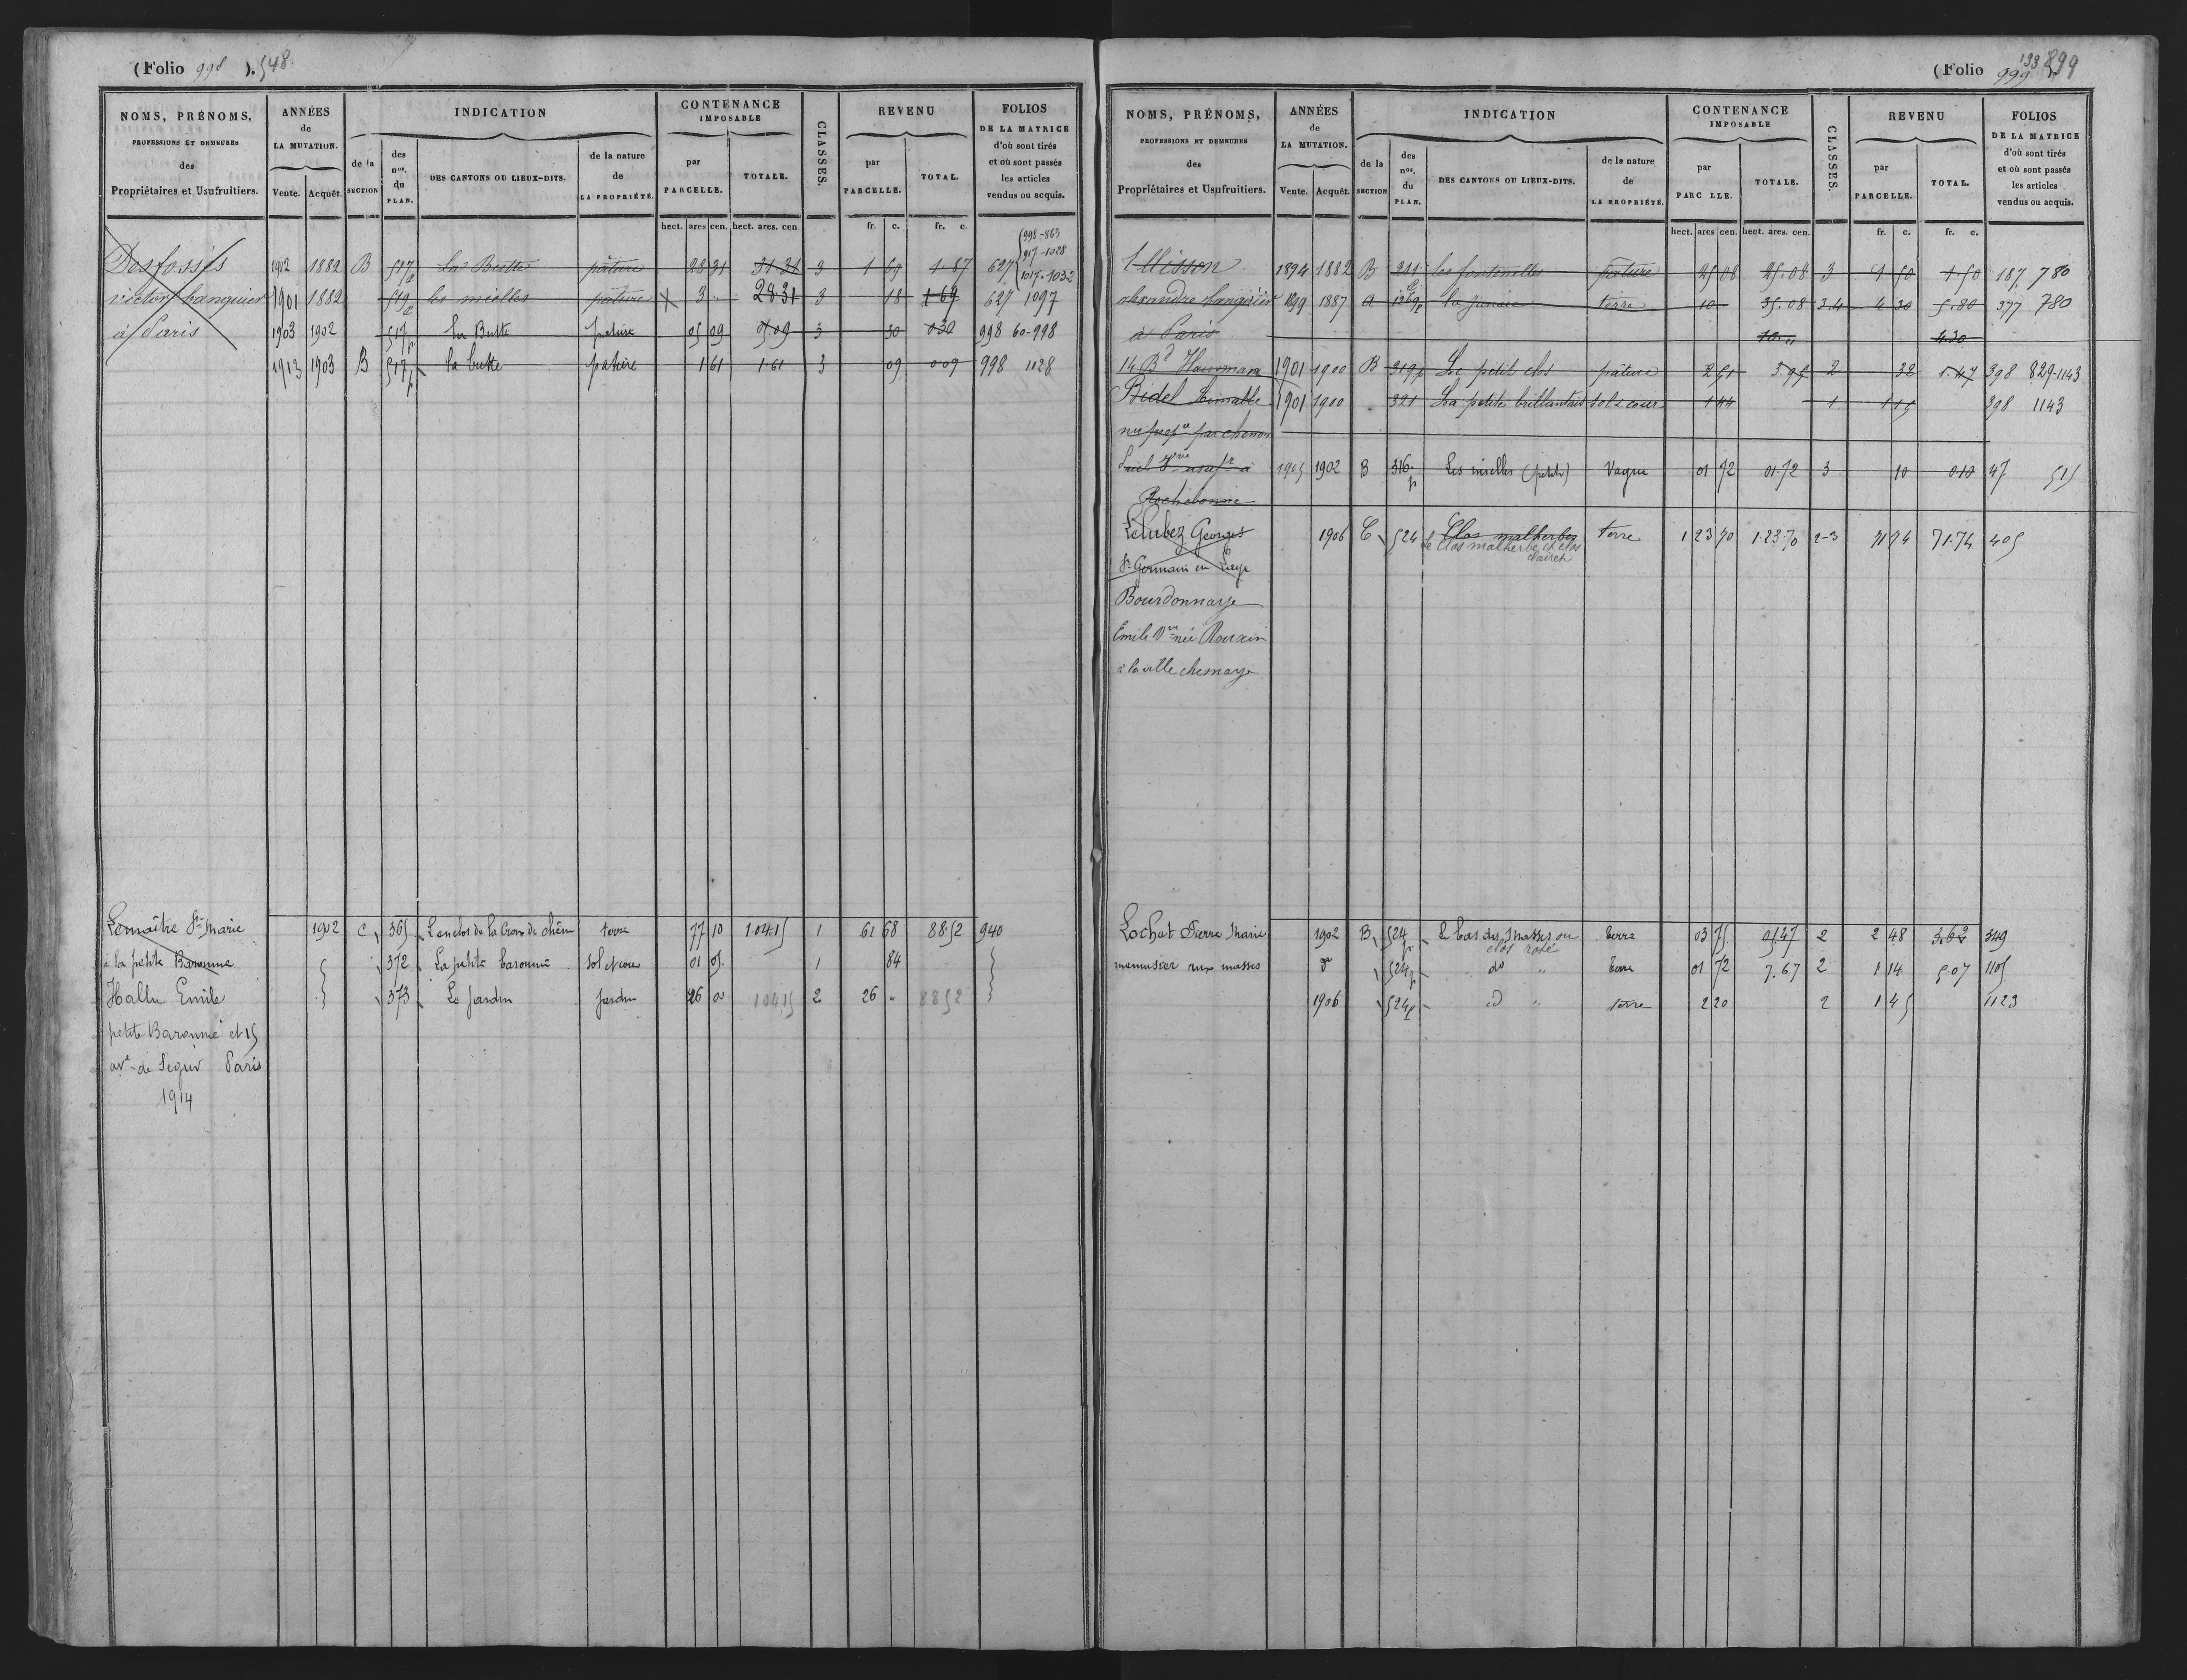 (Folio 998 ). 548
NOMS, PRÉNOMS,
PROFESSIONS ET DEMEURES
des
Propriétaires et Usufruitiers.
ANNÉES
de
LA MUTATION.
Vente. Acquêt.
INDICATION
de la
SECTION
des
nos.
du
PLAN.
DES CANTONS OU LIEUX-DITS.
de la nature
de
LA PROPRIÉTÉ.
CONTENANCE
IMPOSABLE
par
PARCELLE.
TOTALE.
CLASSES.
REVENU
par
PARCELLE.
TOTAL.
FOLIOS
DE LA MATRICE
d'où sont tirés
et où sont passés
les articles
vendus ou acquis.
hect. ares cen. hect. ares. cen. fr. c. fr. c.
998-863
917-1028
1017-1032
Desfossés 1902 1882 B 517p La Butte pâture 28 31 31 31 3 1 69 1.87 627
victor banquier 1901 1882 519p les mielles pâture 3 " 28.31 3 18 1 69 627 1097
à Paris 1903 1902 517p La Butte pature 05 09 05 09 3 30 0 30 998 60-998
1913 1903 B 517p la butte pature 1 61 1.61 3 09 0 09 998 1028
Lemaître Marie 1902 C 365 L'enclos de la Croix de chêne terre 77 10 1.04.15 1 61 68 88.52 940
à la petite Baronnie 372 La petite baronnie sol et cour 01 05 1 84
Hallu Emile 373 Le Jardin jardin 26 00 1 04 15 2 26 " 88 52
petite Baronnie et 15
ave de Segur Paris
1914
(Folio 999 133 899
NOMS, PRÉNOMS,
PROFESSIONS ET DEMEURES
des
Propriétaires et Usufruitiers.
ANNÉES
de
LA MUTATION.
Vente. Acquêt.
INDICATION
de la
SECTION
des
nos.
du
PLAN.
DES CANTONS OU LIEUX-DITS.
de la nature
de
LA PROPRIÉTÉ.
CONTENANCE
IMPOSABLE
par
PARC LLE.
TOTALE.
CLASSES.
REVENU
par
PARCELLE.
TOTAL.
FOLIOS
DE LA MATRICE
d'où sont tirés
et où sont passés
les articles
vendus ou acquis.
hect. ares cen. hect. ares. cen. fr. c. fr. c.
1894 1882 B 211 les fontenelles pâture 25 08 25.08 3 1 50 1.50 187 780
alexandre banquier 1899 1887 A 1269p terre 10 35.08 3.4 4 30 5.80 377 780
à Paris 10 " 4.30
14 Bd Haussmann 1901 1900 B 319p Le petit clos pâture 2 51 3 95 2 32 1.47 398 829-1143
Bidel 1901 1900 321 La petite brillantais sol & cour 1 44 1 1 15 398 1143
1905 1902 B 316p Les mielles (petites) Vague 01 72 01.72 3 10 0.10 47 515
Rochebonne
Lelubez Georges 1906 C 524 Clos malherbes terre 1 23 70 1.23.70 2-3 71 74 71.74 405
le Clos malherbe et clos
St Germain en Laye
Bourdonnaye
Emile Vve née Rouxin
à la ville chesnaye
Lochet Pierre Marie 1902 B 524p Le bas des masses ou terre 03 75 05.47 2 2 48 3.62 349
clos rosé
menuisier aux masses do 524p do " terre 01 72 7.67 2 1 14 5.07 1105
1906 524p d " terre 2 20 2 1 45 1123